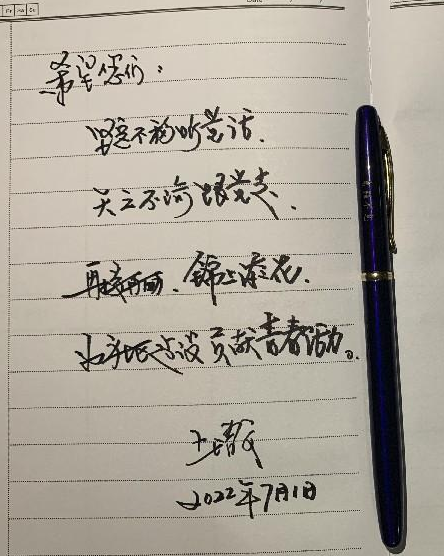 希望您们：
坚定不移听党话、
矢志不渝跟党走、
再接再厉、锦上添花、
为建设贡献青春活力。
2022年7月1日